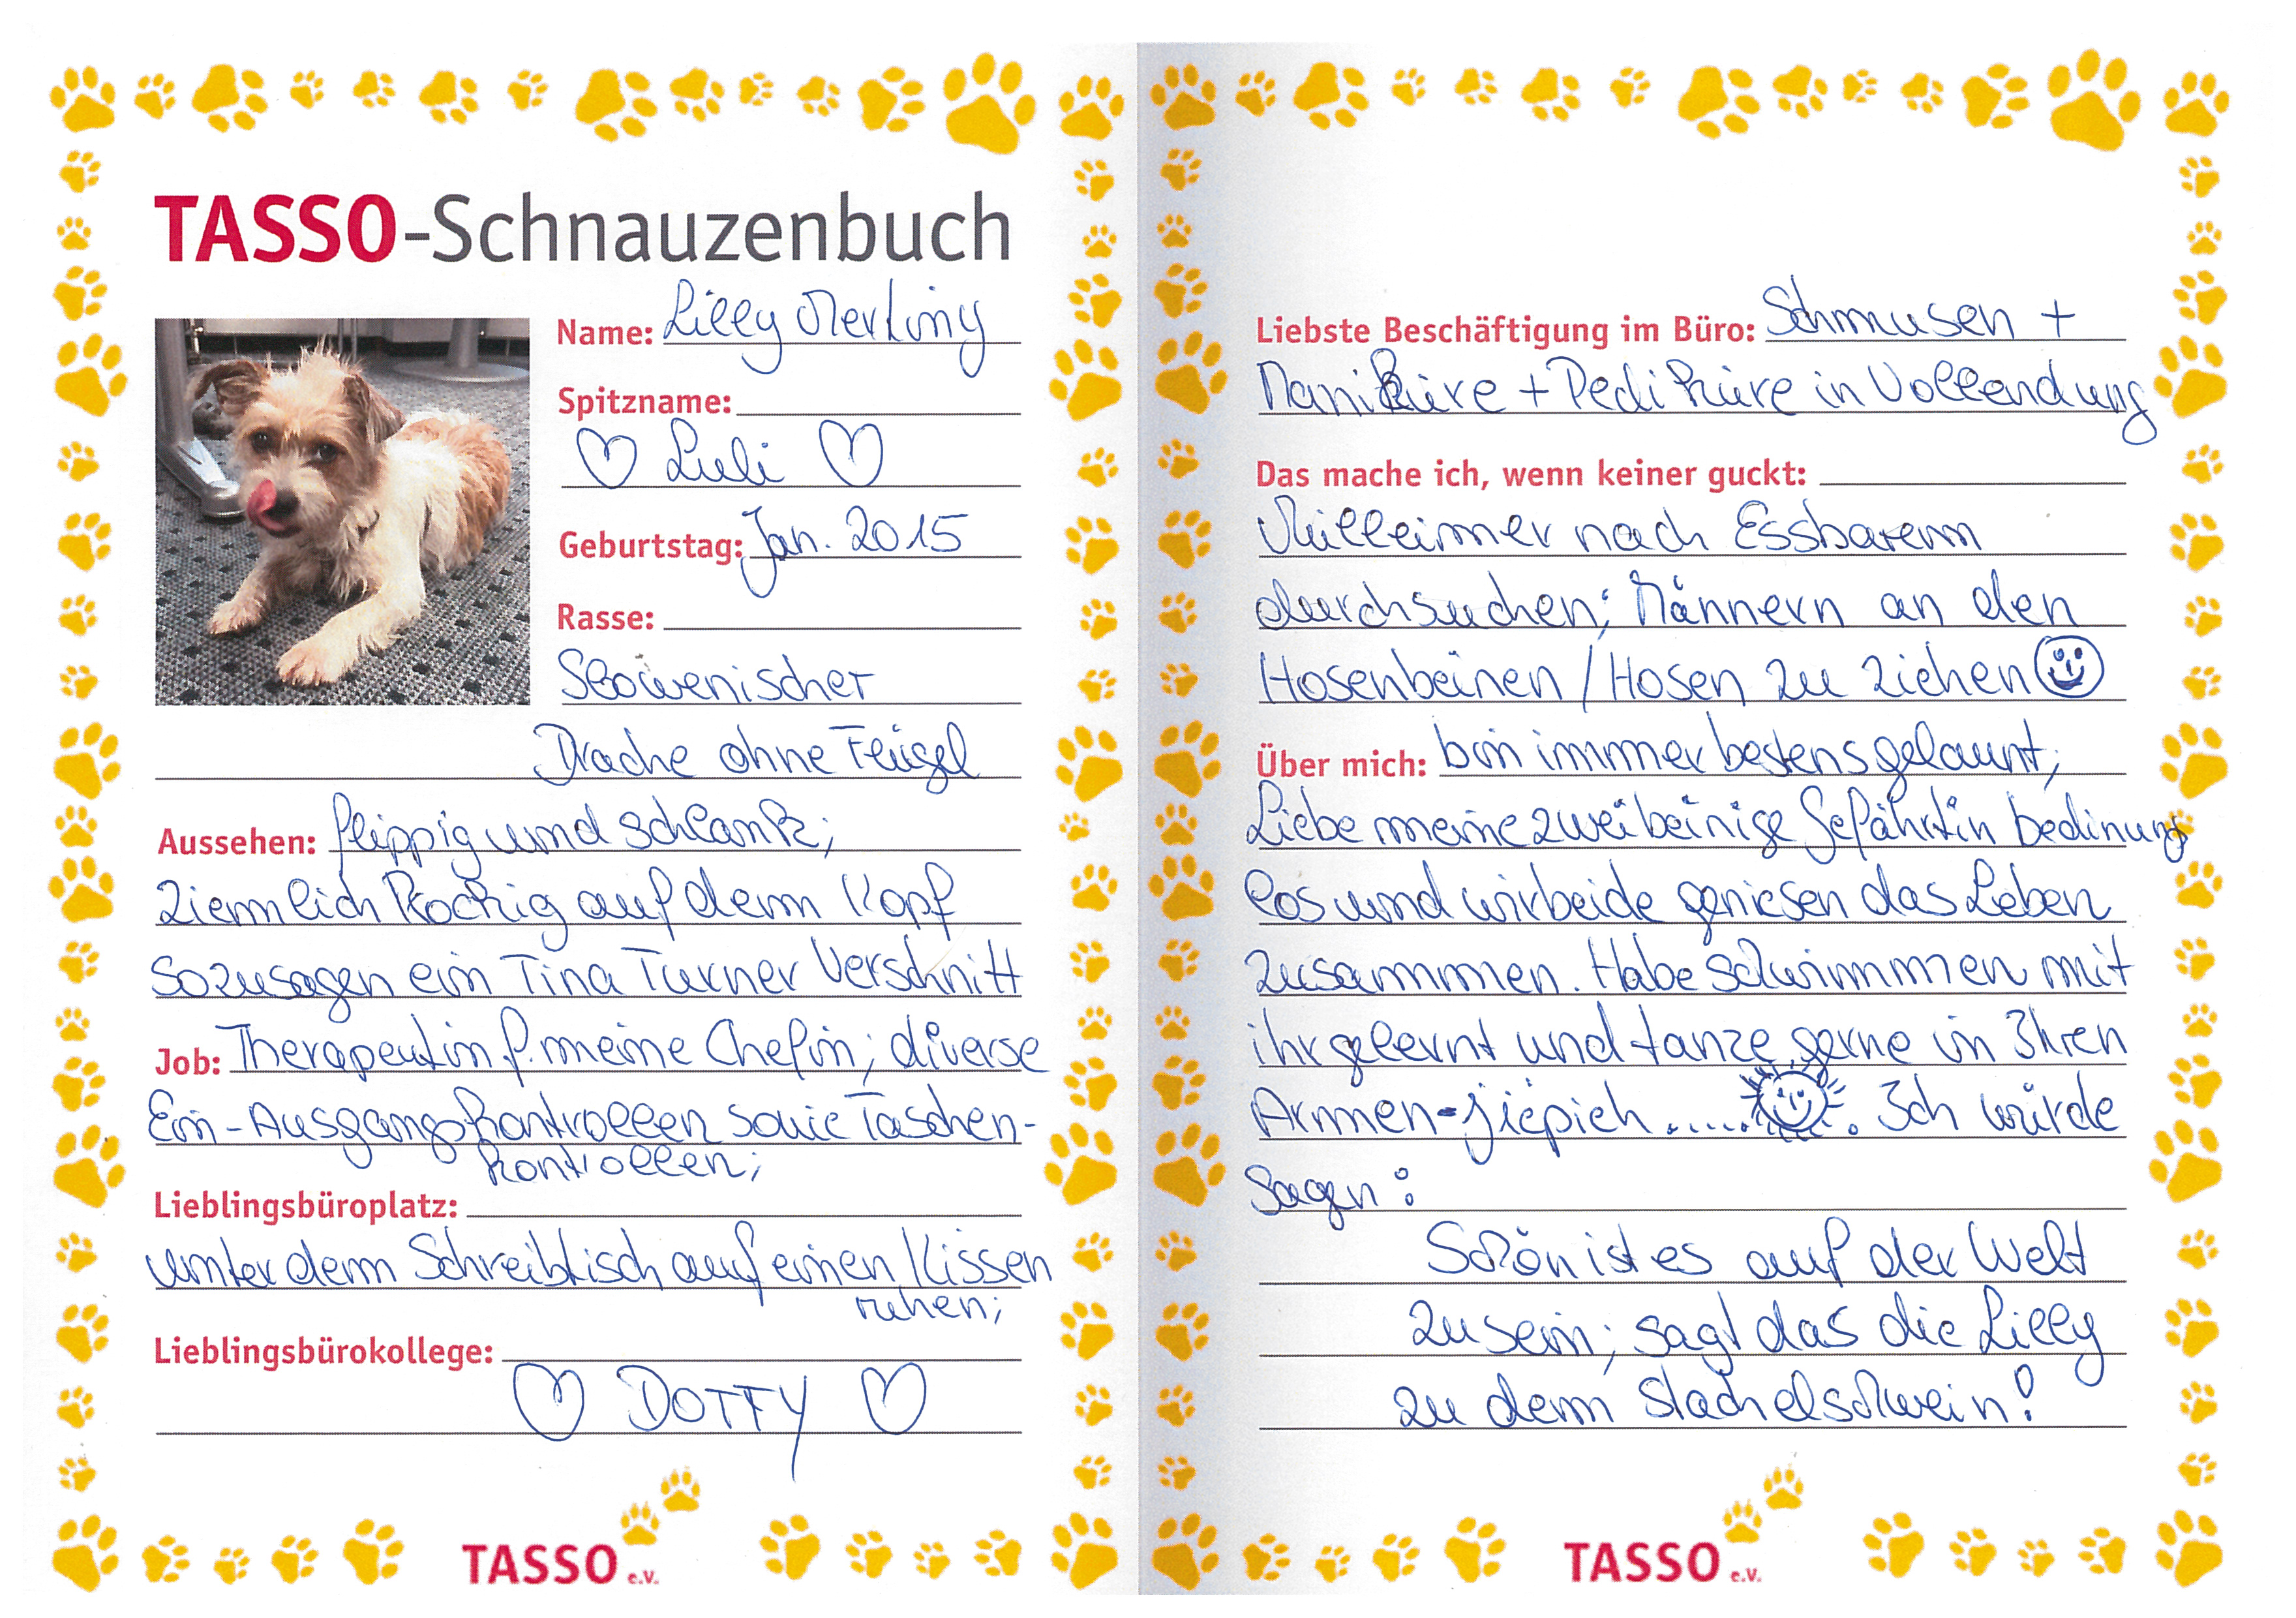 TASSO-Schnauzenbuch
Name: Lilly Merling
Spitzname:
♡ Luli ♡
Geburtstag: Jan. 2015
Rasse:
Slowenischer
Drache ohne Flügel
Aussehen: flippig und schlank;
ziemlich rockig auf dem Kopf
sozusagen ein Tina Turner Verschnitt
Job: Therapeutin f. meine Chefin; diverse
Ein-Ausgangskontrollen sowie Taschen-
kontrollen;
Lieblingsbüroplatz:
unter dem Schreibtisch auf einen Kissen
ruhen;
Lieblingsbürokollege:
♡ DOTTY ♡
TASSO e.V.
Liebste Beschäftigung im Büro: Schmusen +
Maniküre + Pediküre in Vollendung
Das mache ich, wenn keiner guckt:
Mülleimer nach Essbarem
durchsuchen; Männern an den
Hosenbeinen / Hosen zu ziehen
Über mich: bin immer bestens gelaunt;
Liebe meine zweibeinige Gefährtin bedinung
los und wir beide geniesen das Leben
zusammen. Habe schwimmen mit
ihr gelernt und tanze gerne in Ihren
Armen - jiepieh ...... . Ich würde
sagen:
Schön ist es auf der Welt
zu sein; sagt das die Lilly
zu dem Stachelschwein!
TASSO e.V.